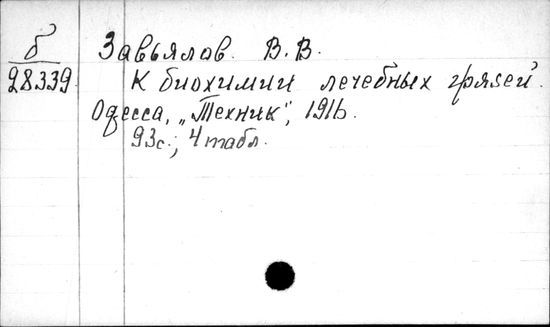 б
28339
Завьялов. В.В.
К биохимии лечебных грязей.
Одесса, „Техник", 1916.
93с.; 4 табл.